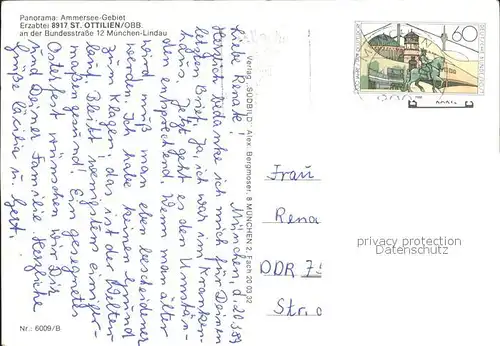 Panorama: Ammersee-Gebiet
Erzabtei 8917 ST. OTTILIEN/OBB.
an der Bundesstraße 12 München-Lindau
München, d. 20.3.89
Liebe Renate!
Herzlich bedanke ich mich für Deinen
letzten Brief. Ja, ich war im Kranken-
haus. Jetzt geht es den Umstän-
den entsprechend. Wenn man älter
wird muß man eben bescheidener
werden. Ich habe keinen Grund
zum Klagen, das ist der Welten
lauf. Bleibt wenigstens einiger-
maßen gesund! Ein gesegnetes
Osterfest wünschen wir Dir
und Deiner Familie. Herzliche
Grüße Cäcilia u. Gert.
Verlag „SÜDBILD“, Alex. Bergmoser, 8 MÜNCHEN 2, Fach 20 03 32
60
Frau
Rena
DDR 7
Str.
privacy protection
Datenschutz
Nr.: 6009/B